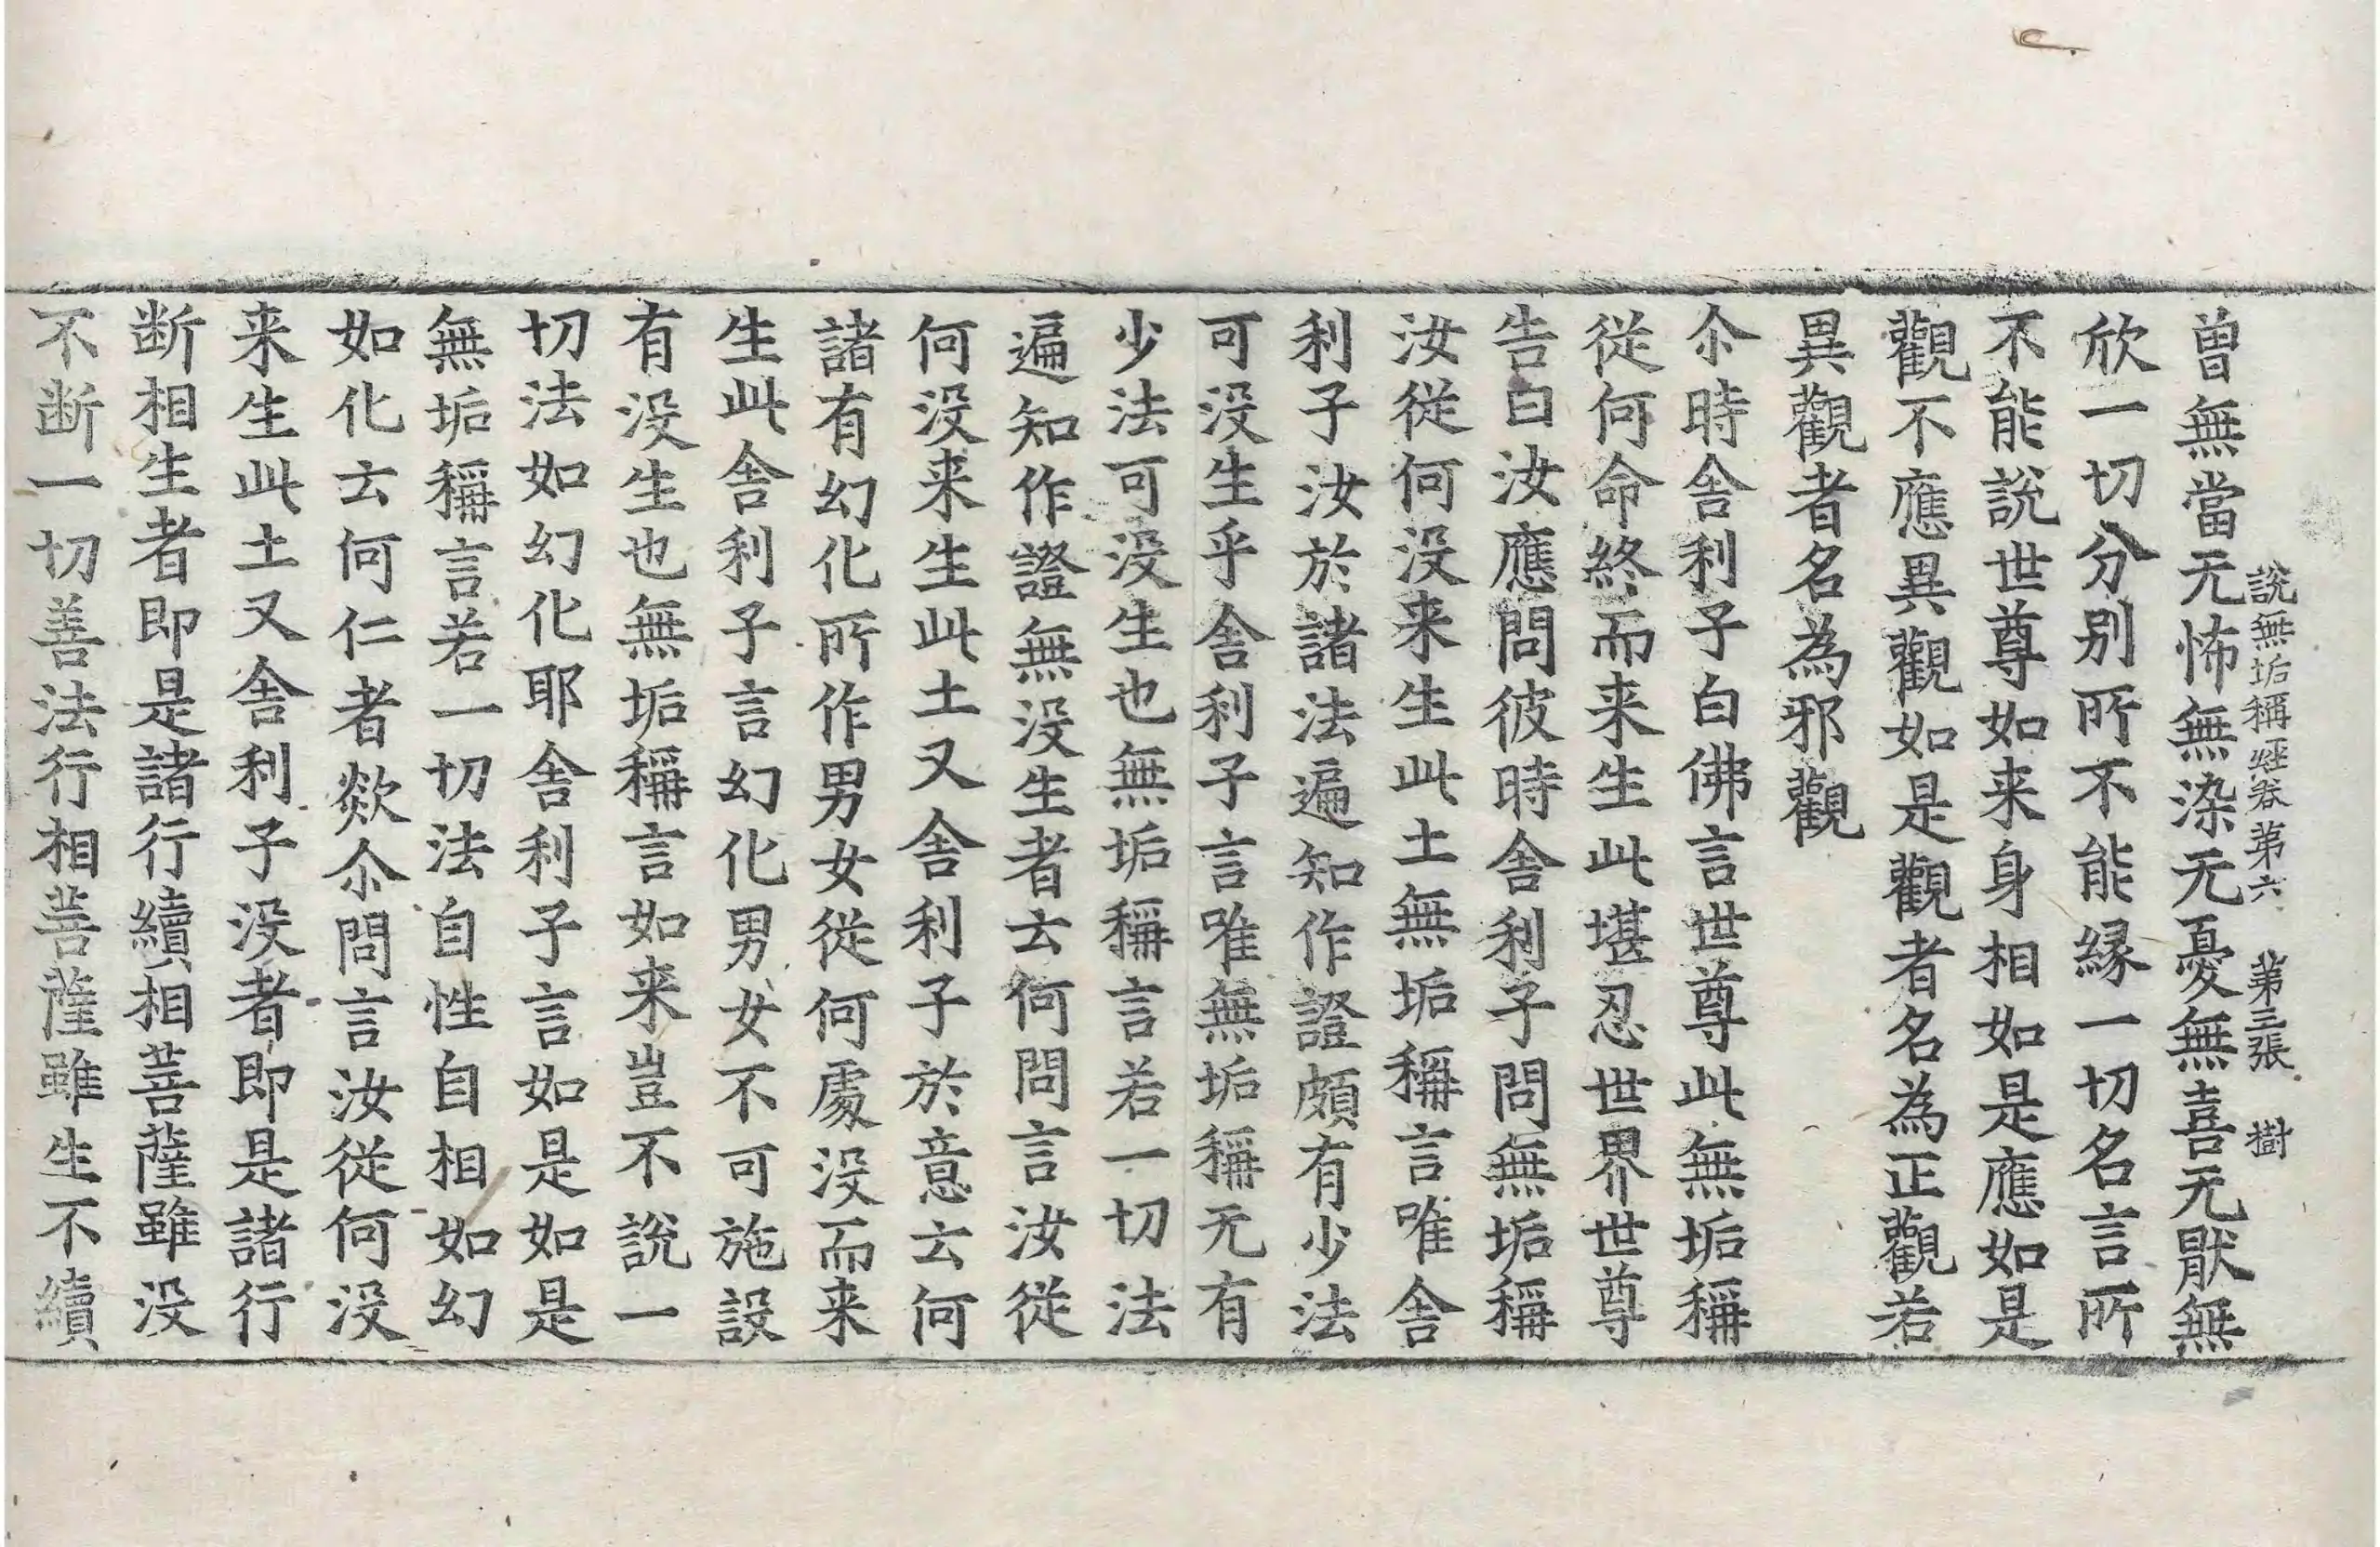 說無垢稱經卷第六　第三張　樹
曽無當无怖無染无憂無喜无猒無
欣一切分別所不能縁一切名言所
不能說世尊如来身相如是應如是
觀不應異觀如是觀者名為正觀若
異觀者名為邪觀
尒時舎利子白佛言世尊此無垢稱
從何命終而来生此堪忍世界世尊
告曰汝應問彼時舎利子問無垢稱
汝從何没来生此土無垢稱言唯舎
利子汝於諸法遍知作證頗有少法
可没生乎舎利子言唯無垢稱无有
少法可没生也無垢稱言若一切法
遍知作證無没生者云何問言汝從
何没来生此土又舎利子於意云何
諸有幻化所作男女從何處没而来
生此舎利子言幻化男女不可施設
有没生也無垢稱言如来豈不說一
切法如幻化耶舎利子言如是如是
無垢稱言若一切法自性自相如幻
如化云何仁者欻尒問言汝從何没
来生此土又舎利子没者即是諸行
断相生者即是諸行續相菩薩雖没
不断一切善法行相菩薩雖生不續